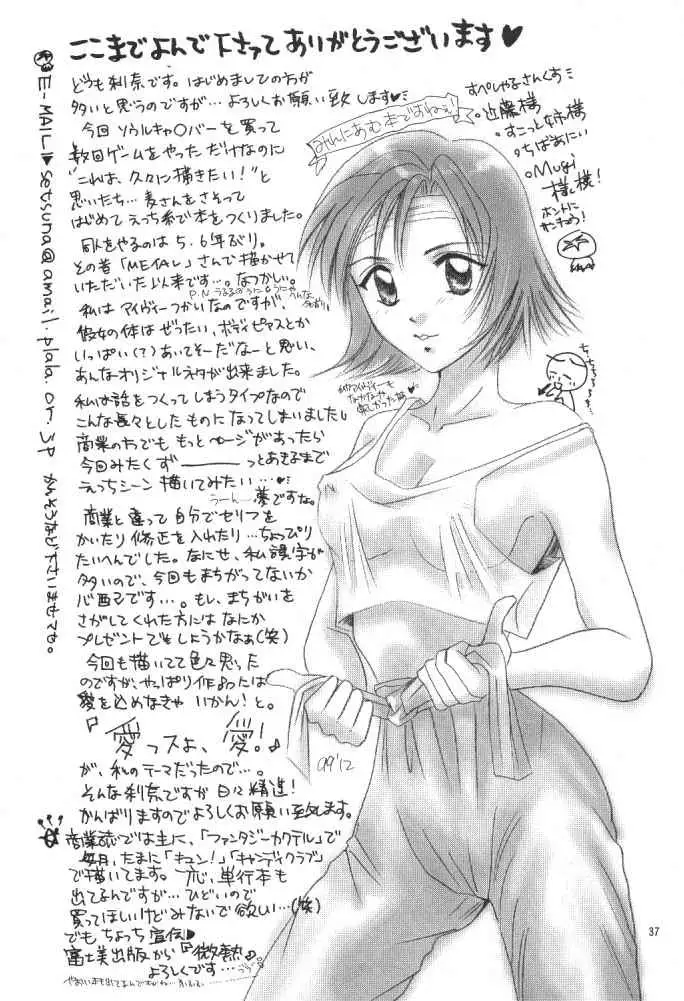 ここまでよんで下さってありがとうございます♥
どうも刹奈です。はじめましての方が
多いと思うのですが…よろしくお願い致します♥
今回ソウルキャ○バーを買って
数回ゲームをやっただけなのに
"これは、久々に描きたい!"と
思いたち…麦さんをさそって
はじめてえっち系で本をつくりました。
同人をやるのは5.6年ぶり。
その昔「METAL」さんで描かせて
いただいた以来です…。なつかしい。
私はアイヴィーつかいなのですが、
彼女の体はぜったい、ボディピアスとか
いっぱい(?)あいてそーだなーと思い、
あんなオリジナルネタが出来ました。
私は話をつくってしまうタイプなので
こんな長々としたものになってしまいました
商業の方でももっとページがあったら
今回みたくず───っとあきるまで
えっちシーン描いてみたい…♥
うーん…夢ですな。
商業と違って自分でセリフを
かいたり修正を入れたり…ちょっぴり
たいへんでした。なにせ、私誤字が
多いので、今回もまちがってないか
心配です…。もし、まちがいを
さがしてくれた方にはなにか
プレゼントでもしようかなぁ(笑)
今回も描いてて色々思った
のですが、やっぱり作品は
愛を込めなきゃいかん!と。
『愛っスよ、愛!』
が、私のテーマだったので…。
そんな刹奈ですが日々精進!
がんばりますのでよろしくお願い致します。
商業誌では主に、「ファンタジーカクテル」で
毎月、たまに「キュン!」「キャンディクラブ」
で描いてます。一応、単行本も
出てるんですが…ひどいので
買ってほしいけどみないで欲しい…(笑)
でもちょっち宣伝♥
富士美出版から『微熱』
よろしくです…
E-MAIL▶setsuna@amail.plala.or.jp かんそうなど下さいませでも。
みんにあむ本ですねぇ!
すぺしゃるさんくす
近藤様
すこっとな姉様
ちばあにい
Mugi様
様!
ホントに
サンキュゥ!
99'12
37